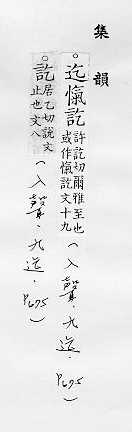 集韻
○迄愾訖許訖切爾雅至也或作愾訖文十九(入聲.九迄.P675)
○訖居乙切說文止也文八(入聲.九迄.P675)